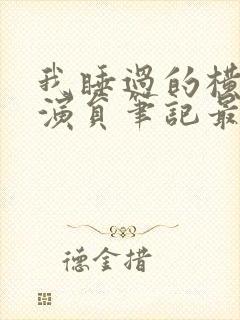 我睡過的橫
演員筆記最
德金措